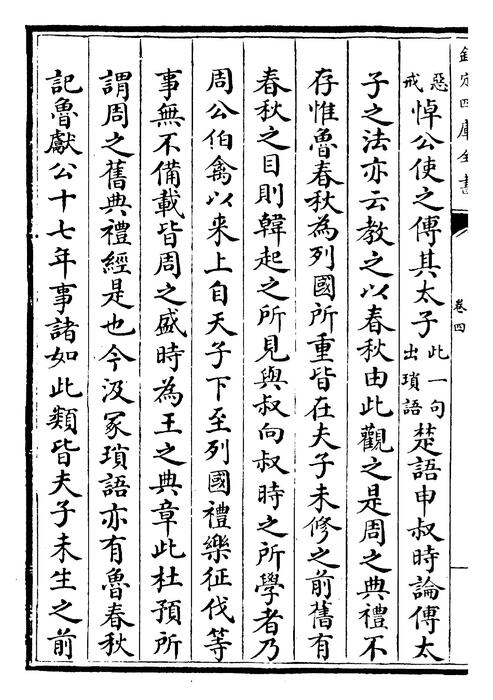 欽定四庫全書
卷四
惡戒悼公使之傳其太子此一句出瑣語楚語申叔時論傳太
子之法亦云教之以春秋由此觀之是周之典禮不
存惟魯春秋為列國所重皆在夫子未修之前舊有
春秋之目則韓起之所見與叔向叔時之所學者乃
周公伯禽以来上自天子下至列國禮樂征伐等
事無不備載皆周之盛時為王之典章此杜預所
謂周之舊典禮經是也今汲冢瑣語亦有魯春秋
記魯獻公十七年事諸如此類皆夫子未生之前